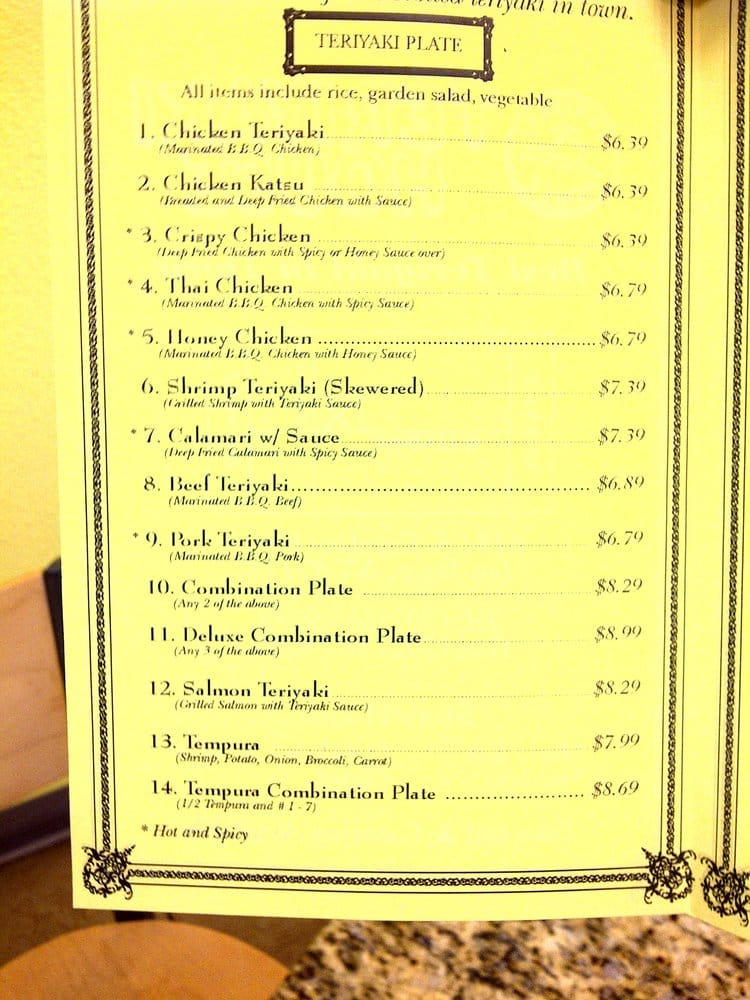 teriyaki in town.
TERIYAKI PLATE
All items include rice, garden salad, vegetable
1. Chicken Teriyaki $6.39
(Marinated B.B.Q. Chicken)
2. Chicken Katsu $6.39
(Breaded and Deep Fried Chicken with Sauce)
* 3. Crispy Chicken $6.39
(Deep Fried Chicken with Spicy or Honey Sauce over)
* 4. Thai Chicken $6.79
(Marinated B.B.Q. Chicken with Spicy Sauce)
* 5. Honey Chicken $6.79
(Marinated B.B.Q. Chicken with Honey Sauce)
6. Shrimp Teriyaki (Skewered) $7.39
(Grilled Shrimp with Teriyaki Sauce)
* 7. Calamari w/ Sauce $7.39
(Deep Fried Calamari with Spicy Sauce)
8. Beef Teriyaki $6.89
(Marinated B.B.Q. Beef)
* 9. Pork Teriyaki $6.79
(Marinated B.B.Q. Pork)
10. Combination Plate $8.29
(Any 2 of the above)
11. Deluxe Combination Plate $8.99
(Any 3 of the above)
12. Salmon Teriyaki $8.29
(Grilled Salmon with Teriyaki Sauce)
13. Tempura $7.99
(Shrimp, Potato, Onion, Broccoli, Carrot)
14. Tempura Combination Plate $8.69
(1/2 Tempura and # 1 - 7)
* Hot and Spicy